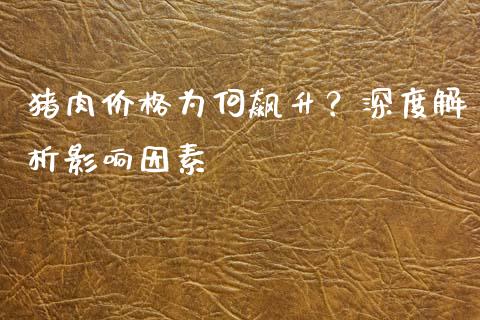 猪肉价格为何飙升？深度解
析影响因素